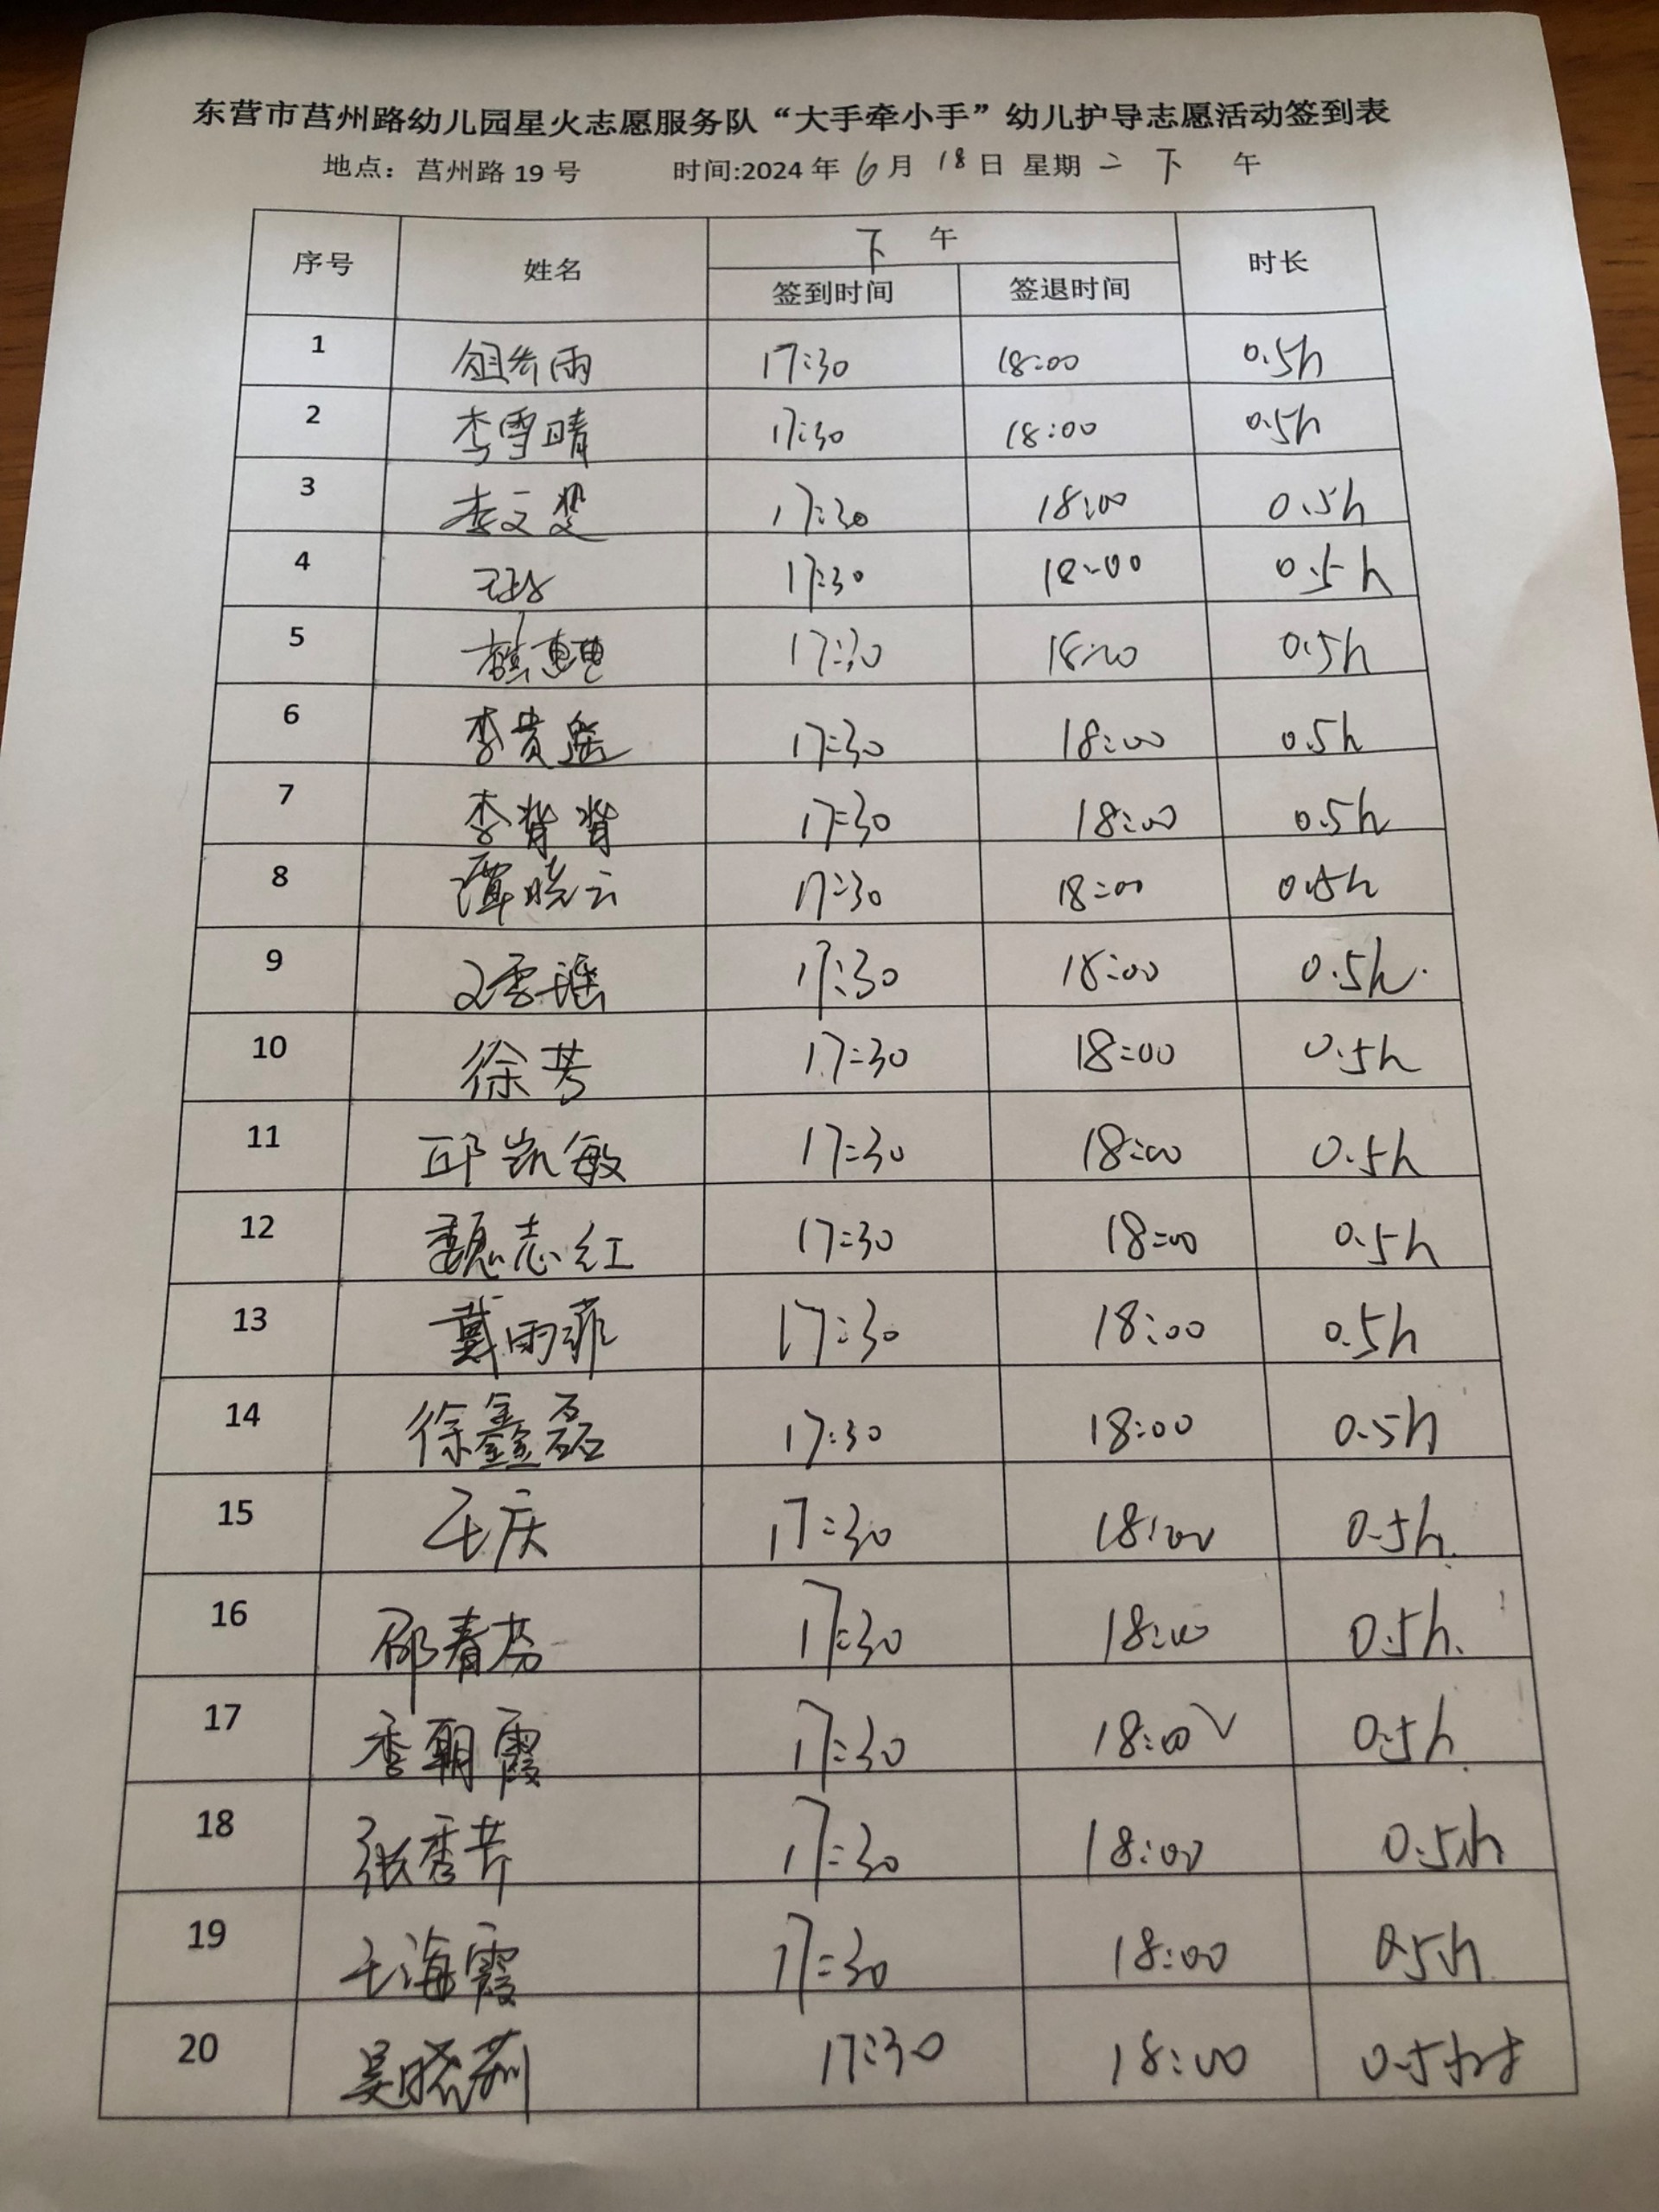 东营市莒州路幼儿园星火志愿服务队“大手牵小手”幼儿护导志愿活动签到表
地点：莒州路 19 号 时间:2024 年 6 月 18 日 星期 二 下 午
序号 姓名 下 午 时长
签到时间 签退时间
1 雨 17:30 18:00 0.5h
2 李雪晴 17:30 18:00 0.5h
3 李文斐 17:30 18:00 0.5h
4 17:30 18:00 0.5h
5 17:30 18:00 0.5h
6 李贵 17:30 18:00 0.5h
7 李背背 17:30 18:00 0.5h
8 谭晓云 17:30 18:00 0.5h
9 文雪瑶 17:30 18:00 0.5h.
10 徐芳 17:30 18:00 0.5h
11 邱凯敏 17:30 18:00 0.5h
12 魏志红 17:30 18:00 0.5h
13 戴雨菲 17:30 18:00 0.5h
14 徐鑫磊 17:30 18:00 0.5h
15 王庆 17:30 18:00 0.5h.
16 邵春芬 17:30 18:00 0.5h.
17 李朝霞 17:30 18:00 0.5h.
18 张秀芹 17:30 18:00 0.5h
19 王海霞 17:30 18:00 0.5h
20 吴晓莉 17:30 18:00 0.5小时